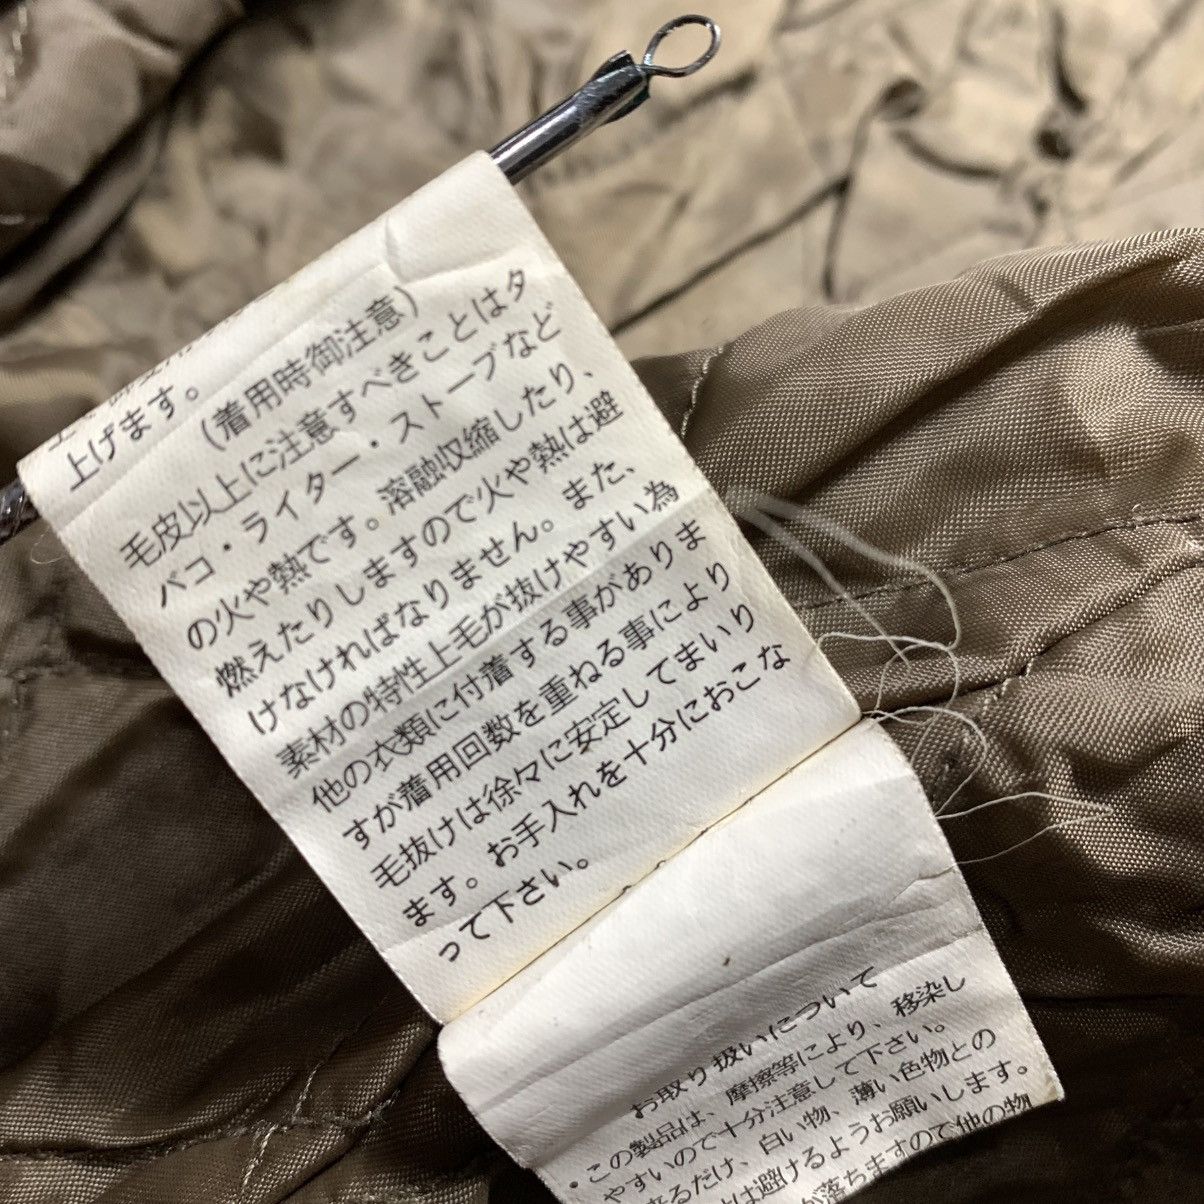 上げます。
(着用時御注意)
毛皮以上に注意すべきことはタ
バコ・ライター・ストーブなど
の火や熱です。溶融収縮したり、
燃えたりしますので火や熱は避
けなければなりません。また、
素材の特性上毛が抜けやすい為
他の衣類に付着する事がありま
すが着用回数を重ねる事により
毛抜けは徐々に安定してまいり
ます。お手入れを十分におこな
って下さい。
お取り扱いについて
・この製品は、摩擦等により、移染し
やすいので十分注意して下さい。
来るだけ、白い物、薄い色物との
は避けるようお願いします。
が落ちますので他の物